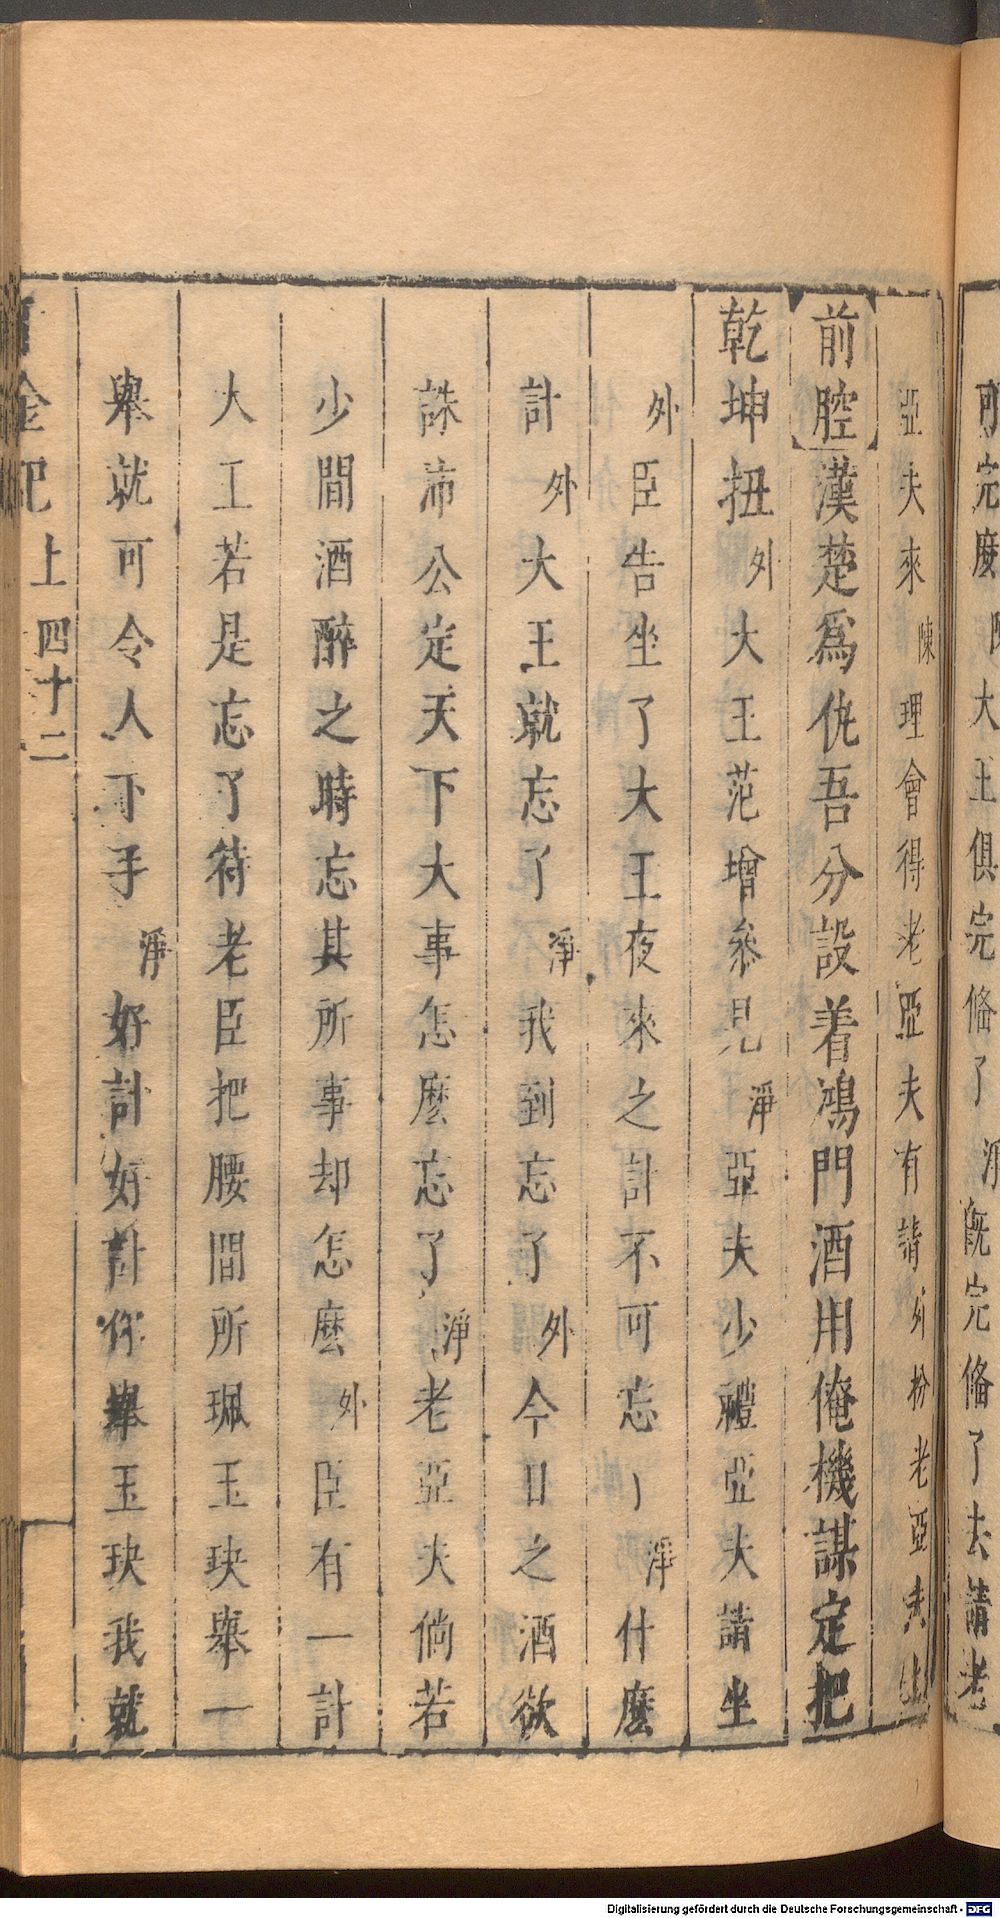 可完麽陳大王俱完俻了淨旣完俻了去請老
亞夫來陳理會得老亞夫有請外扮老亞夫上
前腔漢楚爲仇吾分設着鴻門酒用俺機謀定把
乾坤扭外大王范增叅見淨亞夫少禮亞夫請坐
外臣告坐了大王夜來之計不可忘〻淨什麽
計外大王就忘了淨我到忘了外今日之酒欲
誅沛公定天下大事怎麽忘了淨老亞夫倘若
少間酒醉之時忘其所事却怎麽外臣有一計
大王若是忘了待老臣把腰間所珮玉玦舉一
舉就可令人下手淨好計好計你舉玉玦我就
金記上四十二
Digitalisierung gefördert durch die Deutsche Forschungsgemeinschaft - DFG